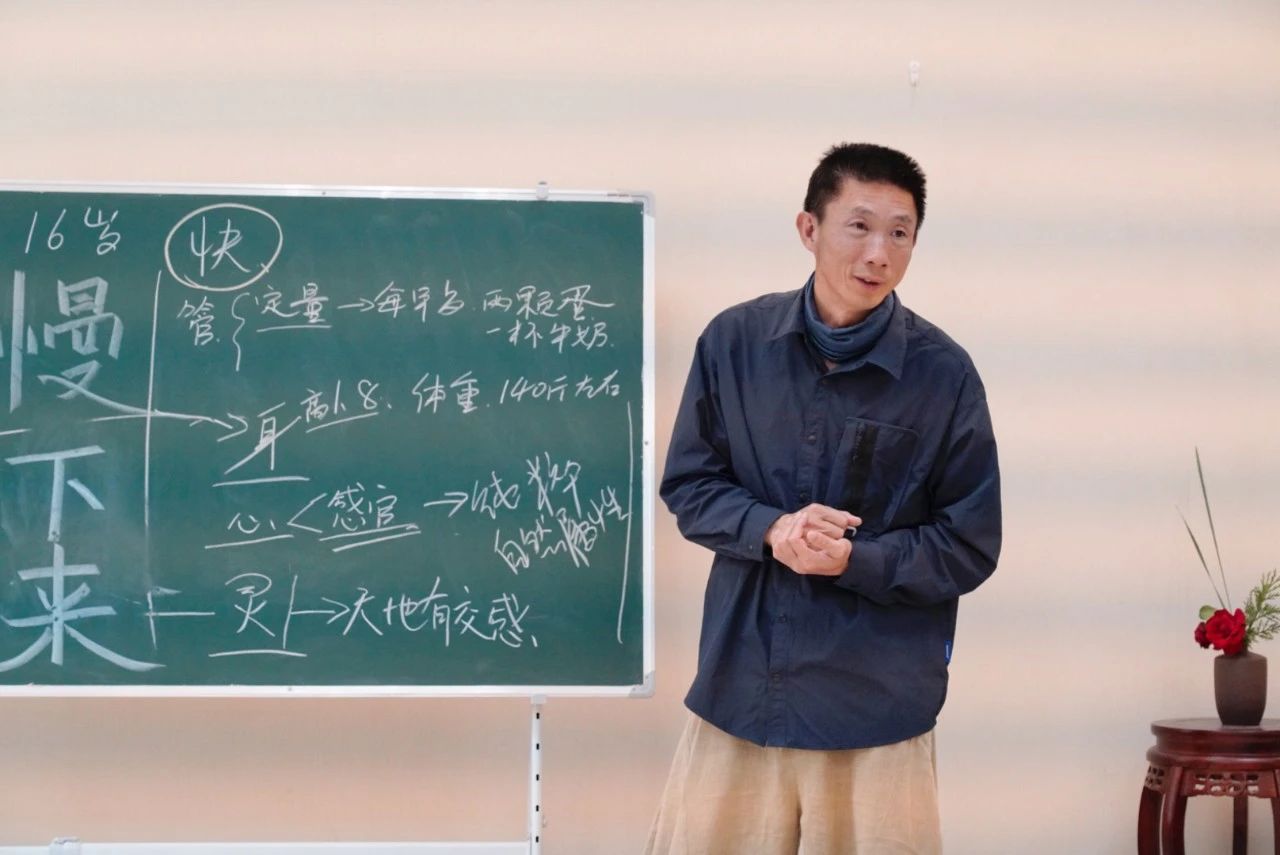 16岁
慢
下
来
快
管{定量→每早each两颗蛋
一杯牛奶.
→身 高1.8、体重.140斤左右
心<感官→纯粹
自然属性
灵→天地有交感、